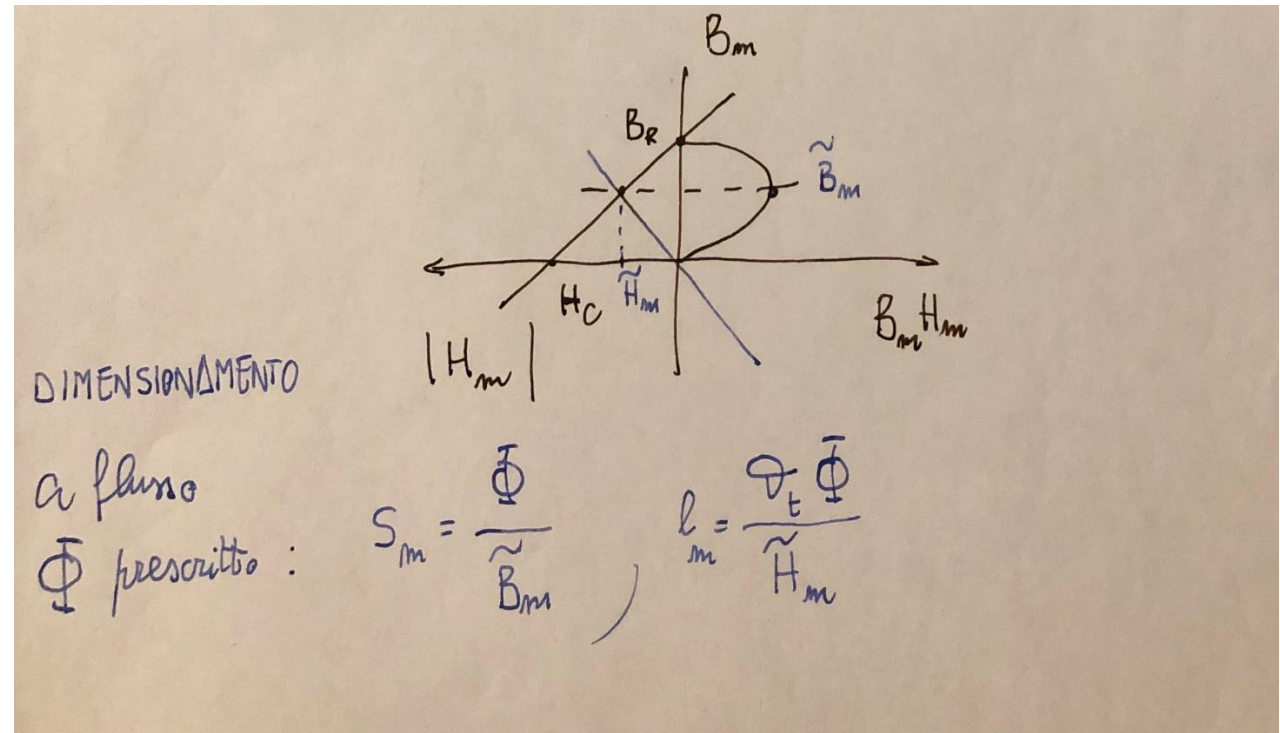 B_m
B_R
B̃_m
H_C
H̃_m
B_m H_m
|H_m|
DIMENSIONAMENTO
a flusso
Φ prescritto : S_m = Φ / B̃_m , l_m = ϑ_t Φ / H̃_m